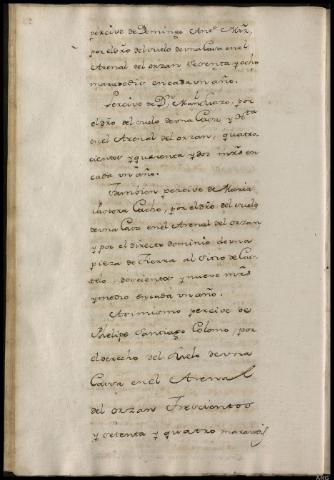 percive de Domingo Anto Mrñ,
por el dro del suelo de vna Casa en el
Arenal del orzan Sesenta y ocho
maravedis en cada vn año.
Percive de Dn Manl por
el dro del suelo de vna Casa y
en el Arenal del orzan, quatro
cientos y quarenta y dos mrs en
cada vn año.
Tamvien percive de Maria
Pastora Cacho, por el dro del suelo
de vna Casa en el Arenal del orzan
y por el directo dominio de vna
pieza de Tierra al Sitio de Cas
telo, doscientos y nueve mrs
y medio en cada vn año.
Asimismo percive de
Phelipe Santiago Colomo, por
el derecho del suelo de vna
Cassa en el Arenal
del orzan Trescientos
y setenta y quatro maravs